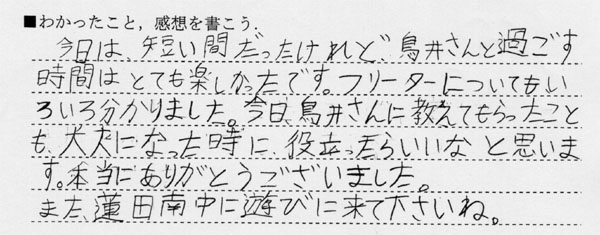 ■わかったこと，感想を書こう.
今日は、短い間だったけれど、鳥井さんと過ごす
時間はとても楽しかったです。フリーターについてもい
ろいろ分かりました。今日、鳥井さんに教えてもらったこと
も、大人になった時に、役立ったらいいな と思いま
す。本当にありがとうございました。
また、蓮田南中に遊びに来て下さいね。